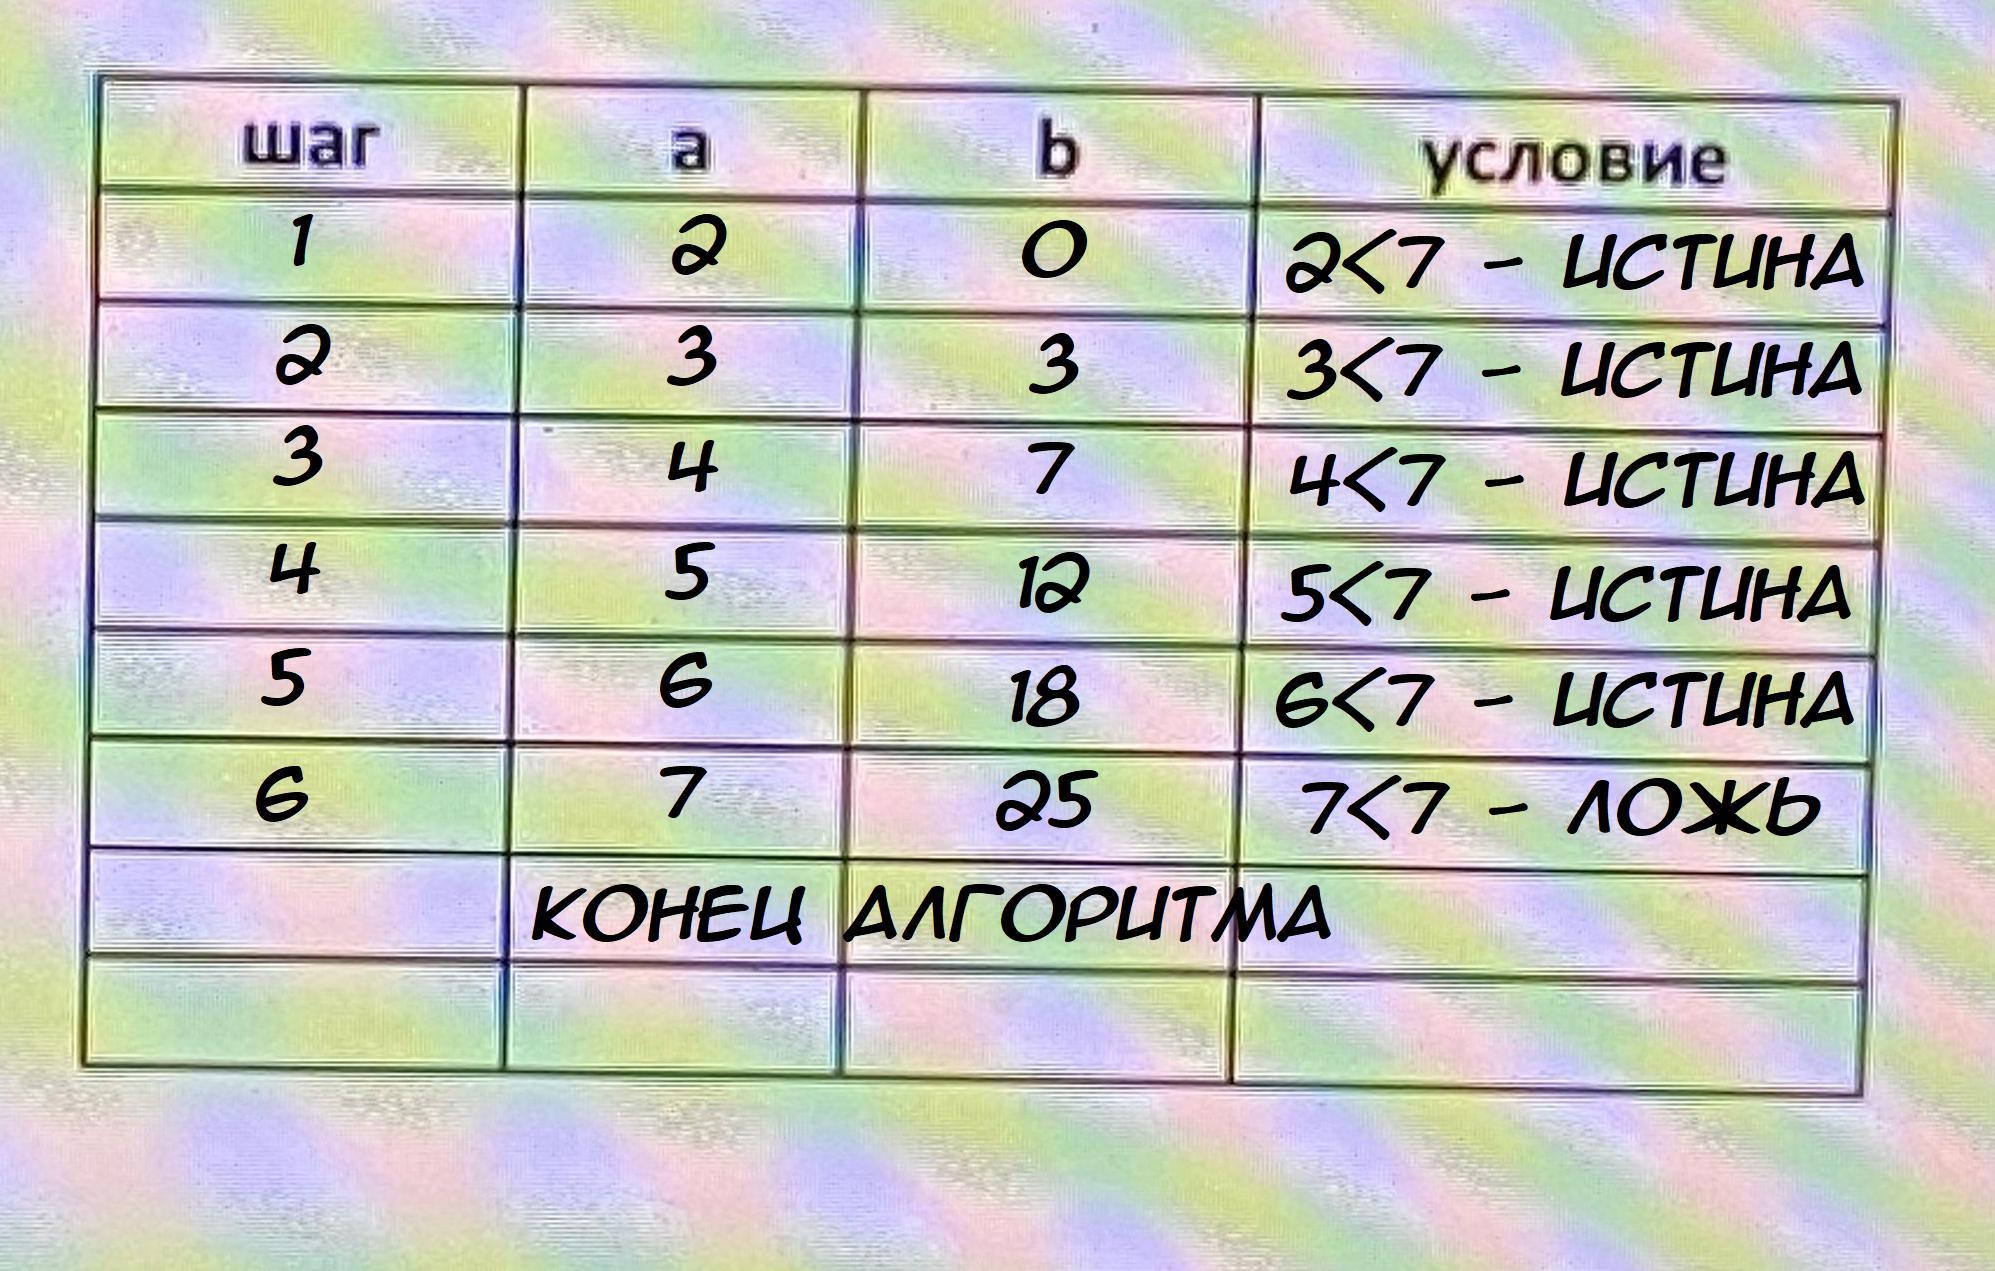 шаг a b условие
1 2 0 2<7 - ИСТИНА
2 3 3 3<7 - ИСТИНА
3 4 7 4<7 - ИСТИНА
4 5 12 5<7 - ИСТИНА
5 6 18 6<7 - ИСТИНА
6 7 25 7<7 - ЛОЖЬ
КОНЕЦ АЛГОРИТМА